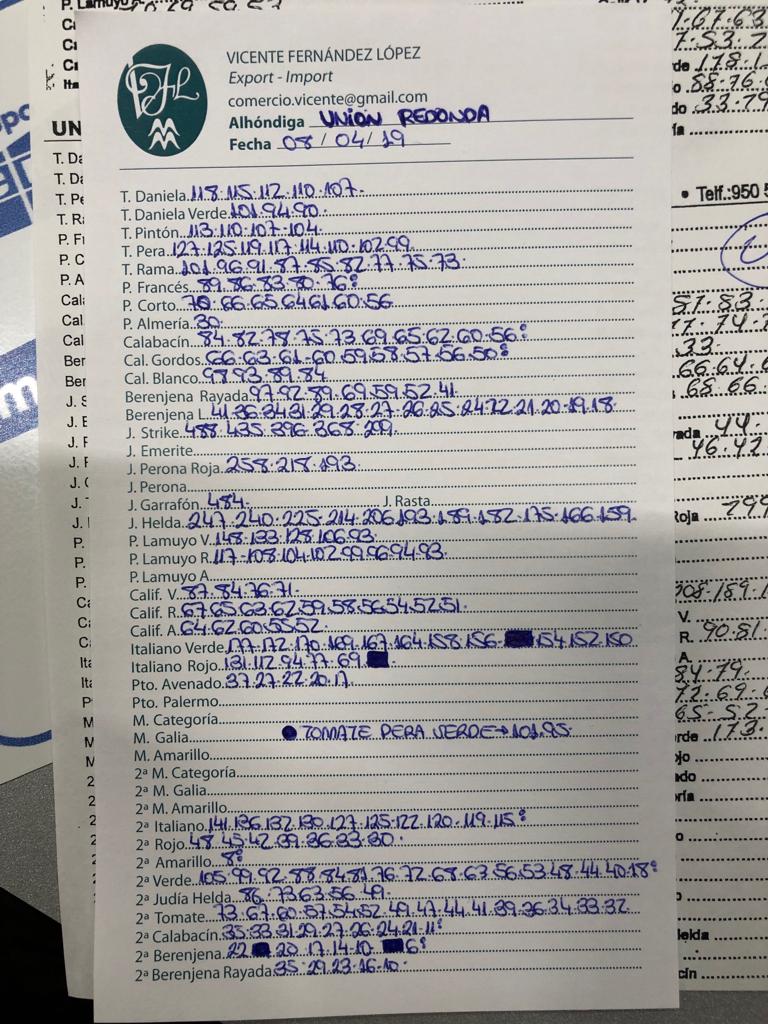 VICENTE FERNÁNDEZ LÓPEZ
Export - Import
comercio.vicente@gmail.com
Alhóndiga UNION REDONDA
Fecha 08/04/19
T. Daniela 118.115.112.110.107.
T. Daniela Verde 101.94.90.
T. Pintón 113.110.107.104.
T. Pera 127.125.119.117.114.110.102.99
T. Rama 101.96.91.87.85.82.77.75.73.
P. Francés 89.86.83.80.76º
P. Corto 70.66.65.64.61.60.56
P. Almería 30
Calabacín 84.82.78.75.73.69.65.62.60.56º
Cal. Gordos 66.63.61.60.59.58.57.56.50º
Cal. Blanco 98.93.89.84
Berenjena Rayada 97.92.89.69.59.52.41
Berenjena L. 41.36.34.31.29.28.27.26.25.24.22.21.20.19.18
J. Strike 488.435.396.368.209.
J. Emerite
J. Perona Roja 258.218.193
J. Perona
J. Garrafón 484. J. Rasta
J. Helda 247.240.225.214.206.193.189.182.175.166.159
P. Lamuyo V. 148.133.128.106.93
P. Lamuyo R. 117.108.104.102.99.96.94.93
P. Lamuyo A
Calif. V. 87.84.76.71.
Calif. R. 67.65.63.62.59.58.56.54.52.51.
Calif. A. 64.62.60.55.52.
Italiano Verde 177.172.170.169.167.164.158.156. 154.152.150
Italiano Rojo 131.112.94.77.69
Pto. Avenado 37.27.22.20.17
Pto. Palermo
M. Categoría
M. Galia ● TOMATE PERA VERDE→101.95.
M. Amarillo
2ª M. Categoría
2ª M. Galia
2ª M. Amarillo
2ª Italiano 141.136.132.130.127.125.122.120.119.115º
2ª Rojo 48.45.42.39.36.33.30.
2ª Amarillo 8º
2ª Verde 105.99.92.88.84.81.76.72.68.63.56.53.48.44.40.18º
2ª Judía Helda 86.73.63.56.49.
2ª Tomate 73.67.60.57.54.52.49.47.44.41.39.36.34.33.32
2ª Calabacín 35.33.31.29.27.26.24.21.11º
2ª Berenjena 22 20.17.14.10 6º
2ª Berenjena Rayada 35.29.23.16.10.